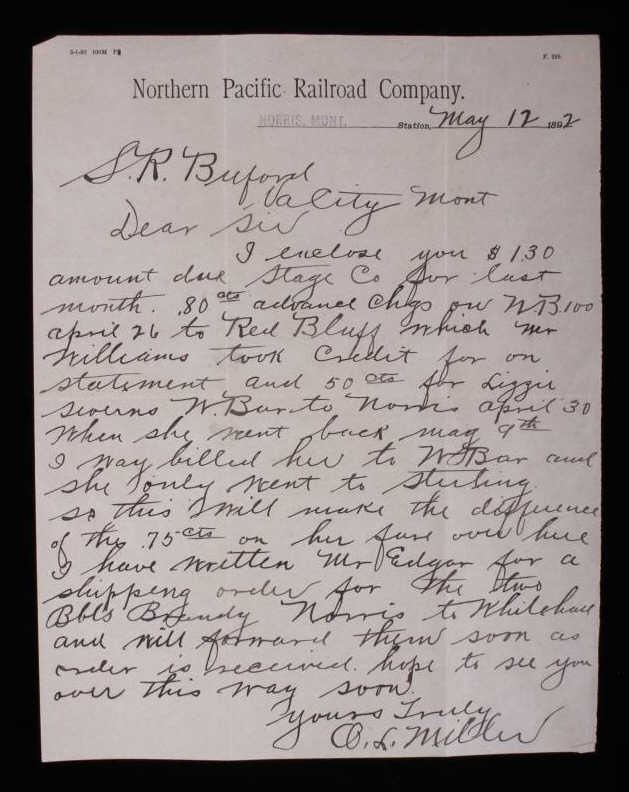 Northern Pacific Railroad Company.
NORRIS, MONT. Station, May 12 1892
S. R. Buford
Va City Mont
Dear Sir
I enclose you $1.30
amount due Stage Co for last
month. .80 cts advance Chgs on W.B. 100
april 26 to Red Bluff which Mr
Williams took Credit for on
statement and 50 cts for Lizzie
Severns W. Bar to Norris april 30
When she went back may 9th
I way billed her to W. Bar and
she only went to Sterling
so this will make the difference
of the .75 cts on her fare over here
I have written Mr Edgar for a
shipping order for the two
Bbls Brandy Norris to Whitehall
and will forward them soon as
order is received. hope to see you
over this way soon.
Yours Truly
O. L. Miller